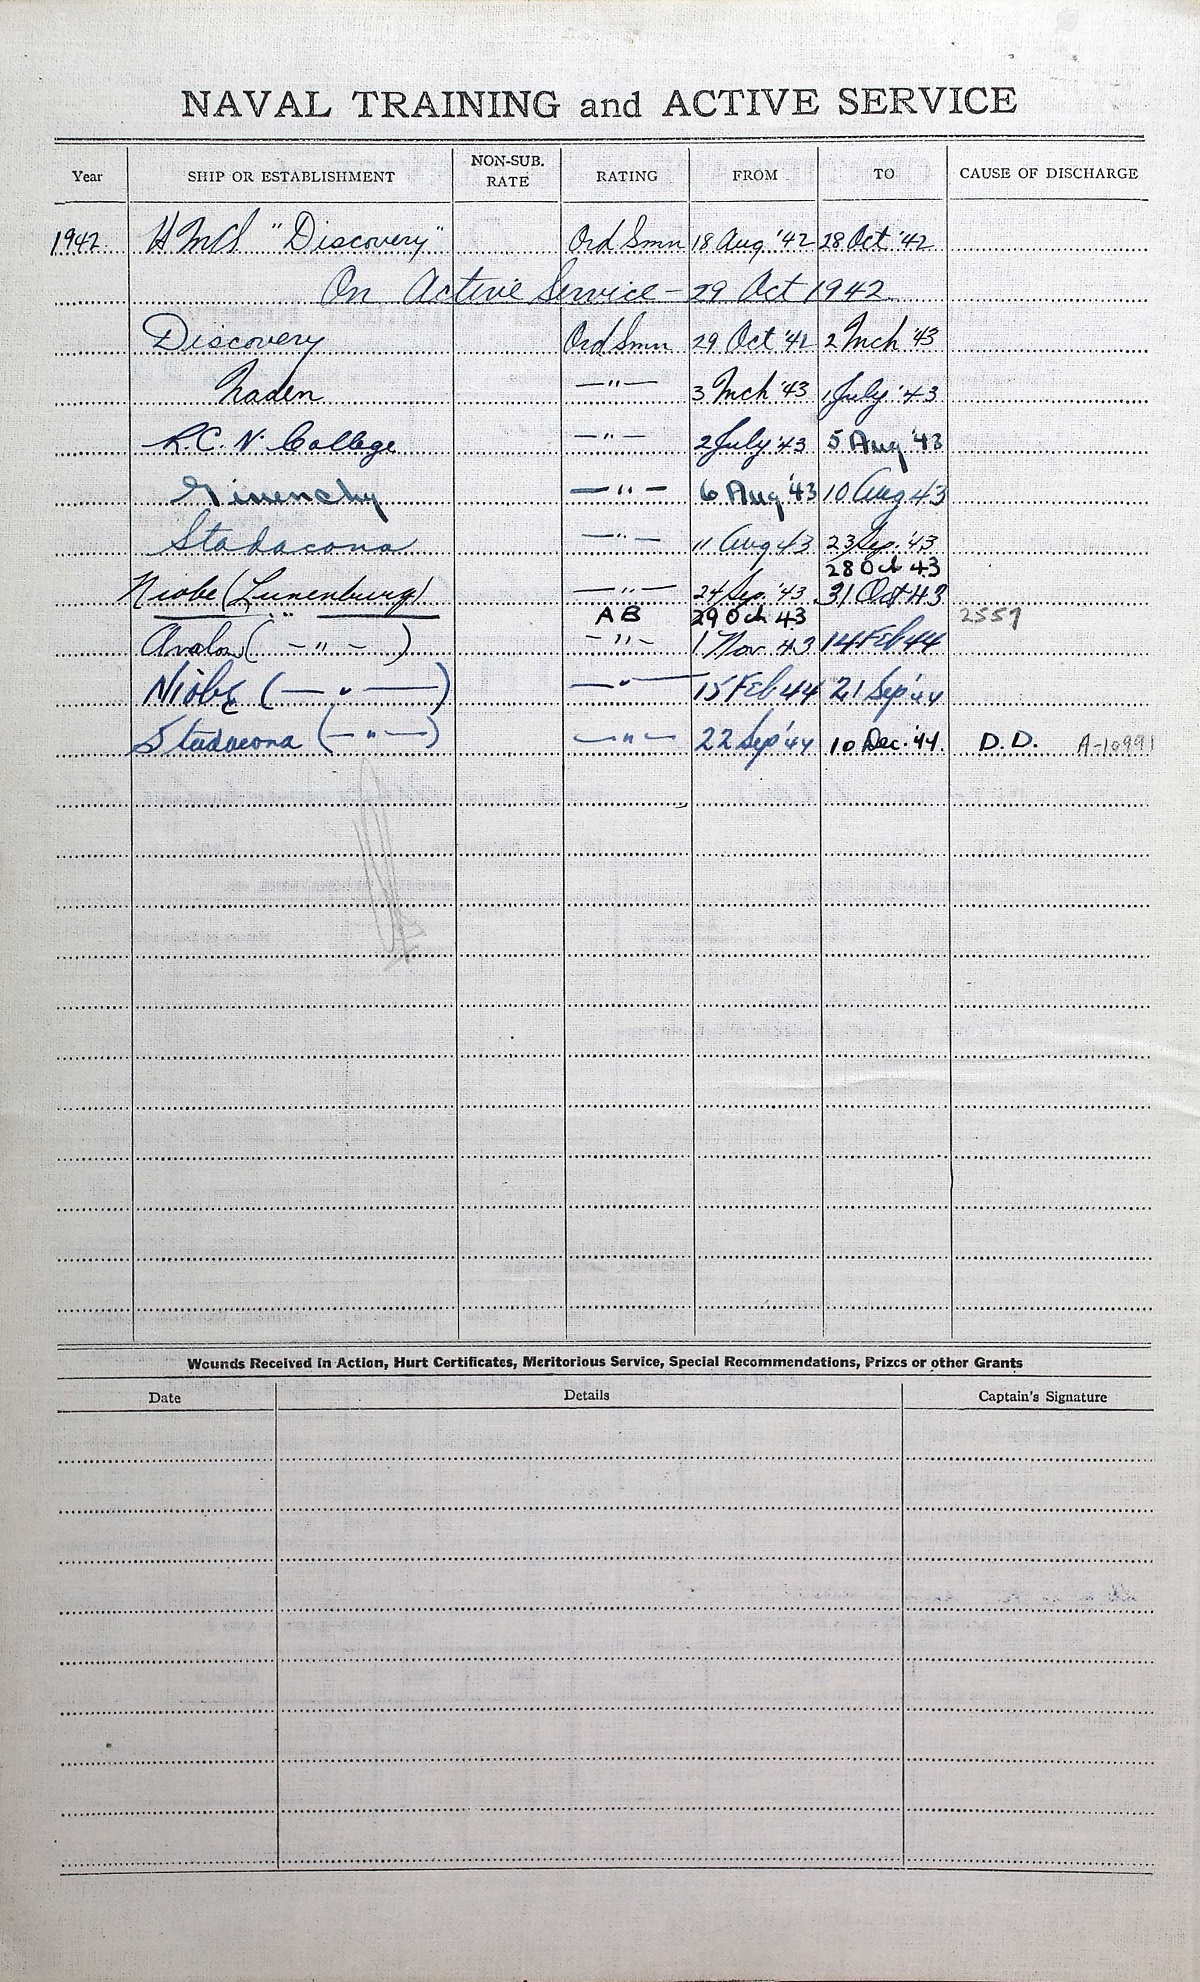 NAVAL TRAINING and ACTIVE SERVICE
Year SHIP OR ESTABLISHMENT NON-SUB. RATE RATING FROM TO CAUSE OF DISCHARGE
1942 HMCS "Discovery" Ord Smn 18 Aug '42 28 Oct '42
On Active Service - 29 Oct 1942
Discovery Ord Smn 29 Oct '42 2 Mch '43
Naden — " — 3 Mch '43 1 July '43
R.C.N. College — " — 2 July '43 5 Aug '43
Givenchy — " — 6 Aug '43 10 Aug 43
Stadacona — " — 11 Aug 43 23 Sep. '43
28 Oct 43
Niobe (Lunenburg) — " — 24 Sep. '43 31 Oct 43
" AB 29 Oct 43 2559
Avalon ( — " — ) — " — 1 Nov. 43 14 Feb 44
Niobe ( — " — ) — " — 15 Feb 44 21 Sep '44
Stadacona ( — " — ) — " — 22 Sep '44 10 Dec. '44. D.D. A-10991
Wounds Received in Action, Hurt Certificates, Meritorious Service, Special Recommendations, Prizes or other Grants
Date Details Captain's Signature